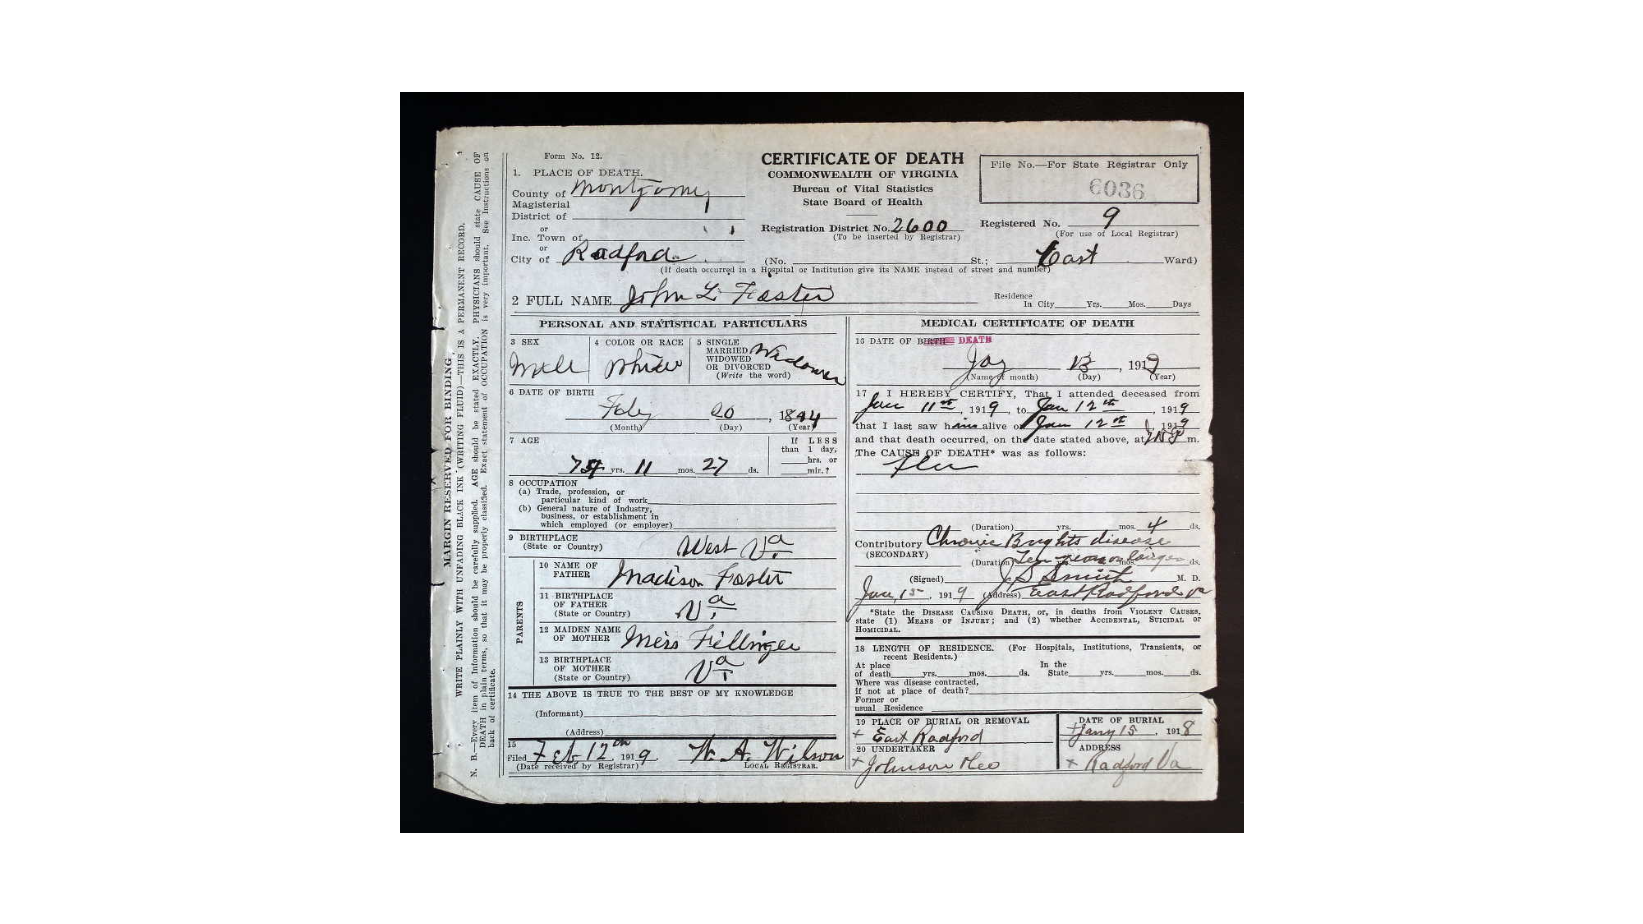 Form No. 12.
CERTIFICATE OF DEATH
COMMONWEALTH OF VIRGINIA
Bureau of Vital Statistics
State Board of Health
File No.—For State Registrar Only
6036
1. PLACE OF DEATH.
County of Montgomy
Magisterial
District of
or
Inc. Town of
or
City of Radford
Registration District No. 2600
(To be inserted by Registrar)
Registered No. 9
(For use of Local Registrar)
(No. St.; East Ward)
(If death occurred in a Hospital or Institution give its NAME instead of street and number)
2 FULL NAME John L. Foster
Residence
In City Yrs. Mos. Days
PERSONAL AND STATISTICAL PARTICULARS
3 SEX
Male
4 COLOR OR RACE
White
5 SINGLE
MARRIED
WIDOWED
OR DIVORCED
(Write the word)
Widower
6 DATE OF BIRTH
20, 1844
(Month) (Day) (Year)
7 AGE
74 yrs. 11 mos. 27 ds.
If LESS
than 1 day,
hrs. or
min.?
8 OCCUPATION
(a) Trade, profession, or
particular kind of work
(b) General nature of Industry,
business, or establishment in
which employed (or employer)
9 BIRTHPLACE
(State or Country)
West Va.
PARENTS
10 NAME OF
FATHER
Madison Foster
11 BIRTHPLACE
OF FATHER
(State or Country)
Va
12 MAIDEN NAME
OF MOTHER
Miss Fillinger
13 BIRTHPLACE
OF MOTHER
(State or Country)
Va
14 THE ABOVE IS TRUE TO THE BEST OF MY KNOWLEDGE
(Informant)
(Address)
15
Filed Feb 12th, 1919 W. A. Wilson
(Date received by Registrar) LOCAL REGISTRAR.
MEDICAL CERTIFICATE OF DEATH
16 DATE OF DEATH
13, 1919
(Name of month) (Day) (Year)
17 I HEREBY CERTIFY, That I attended deceased from
Jan 11th, 1919, to Jan 12th, 1919
that I last saw him alive on Jan 12th, 1919
and that death occurred, on the date stated above, at m.
The CAUSE OF DEATH* was as follows:
Flu
(Duration) yrs. mos. 4 ds.
Contributory Chronic Brights disease
(SECONDARY)
(Duration) Ten years or longer mos. ds.
(Signed) J S Smith M. D.
Jan, 15, 1919 (Address) East Radford Va
*State the DISEASE CAUSING DEATH, or, in deaths from VIOLENT CAUSES,
state (1) MEANS OF INJURY; and (2) whether ACCIDENTAL, SUICIDAL or
HOMICIDAL.
18 LENGTH OF RESIDENCE. (For Hospitals, Institutions, Transients, or
recent Residents.)
At place In the
of death yrs. mos. ds. State yrs. mos. ds.
Where was disease contracted,
if not at place of death?
Former or
usual Residence
19 PLACE OF BURIAL OR REMOVAL
+ East Radford
DATE OF BURIAL
+ Jany 15, 1918
20 UNDERTAKER
+ Johnson
ADDRESS
+ Radford Va
MARGIN RESERVED FOR BINDING.
WRITE PLAINLY WITH UNFADING BLACK INK (WRITING FLUID)—THIS IS A PERMANENT RECORD.
N. B.—Every item of Information should be carefully supplied. AGE should be stated EXACTLY. PHYSICIANS should state CAUSE OF
DEATH in plain terms, so that it may be properly classified. Exact statement of OCCUPATION is very important. See Instructions on
back of certificate.